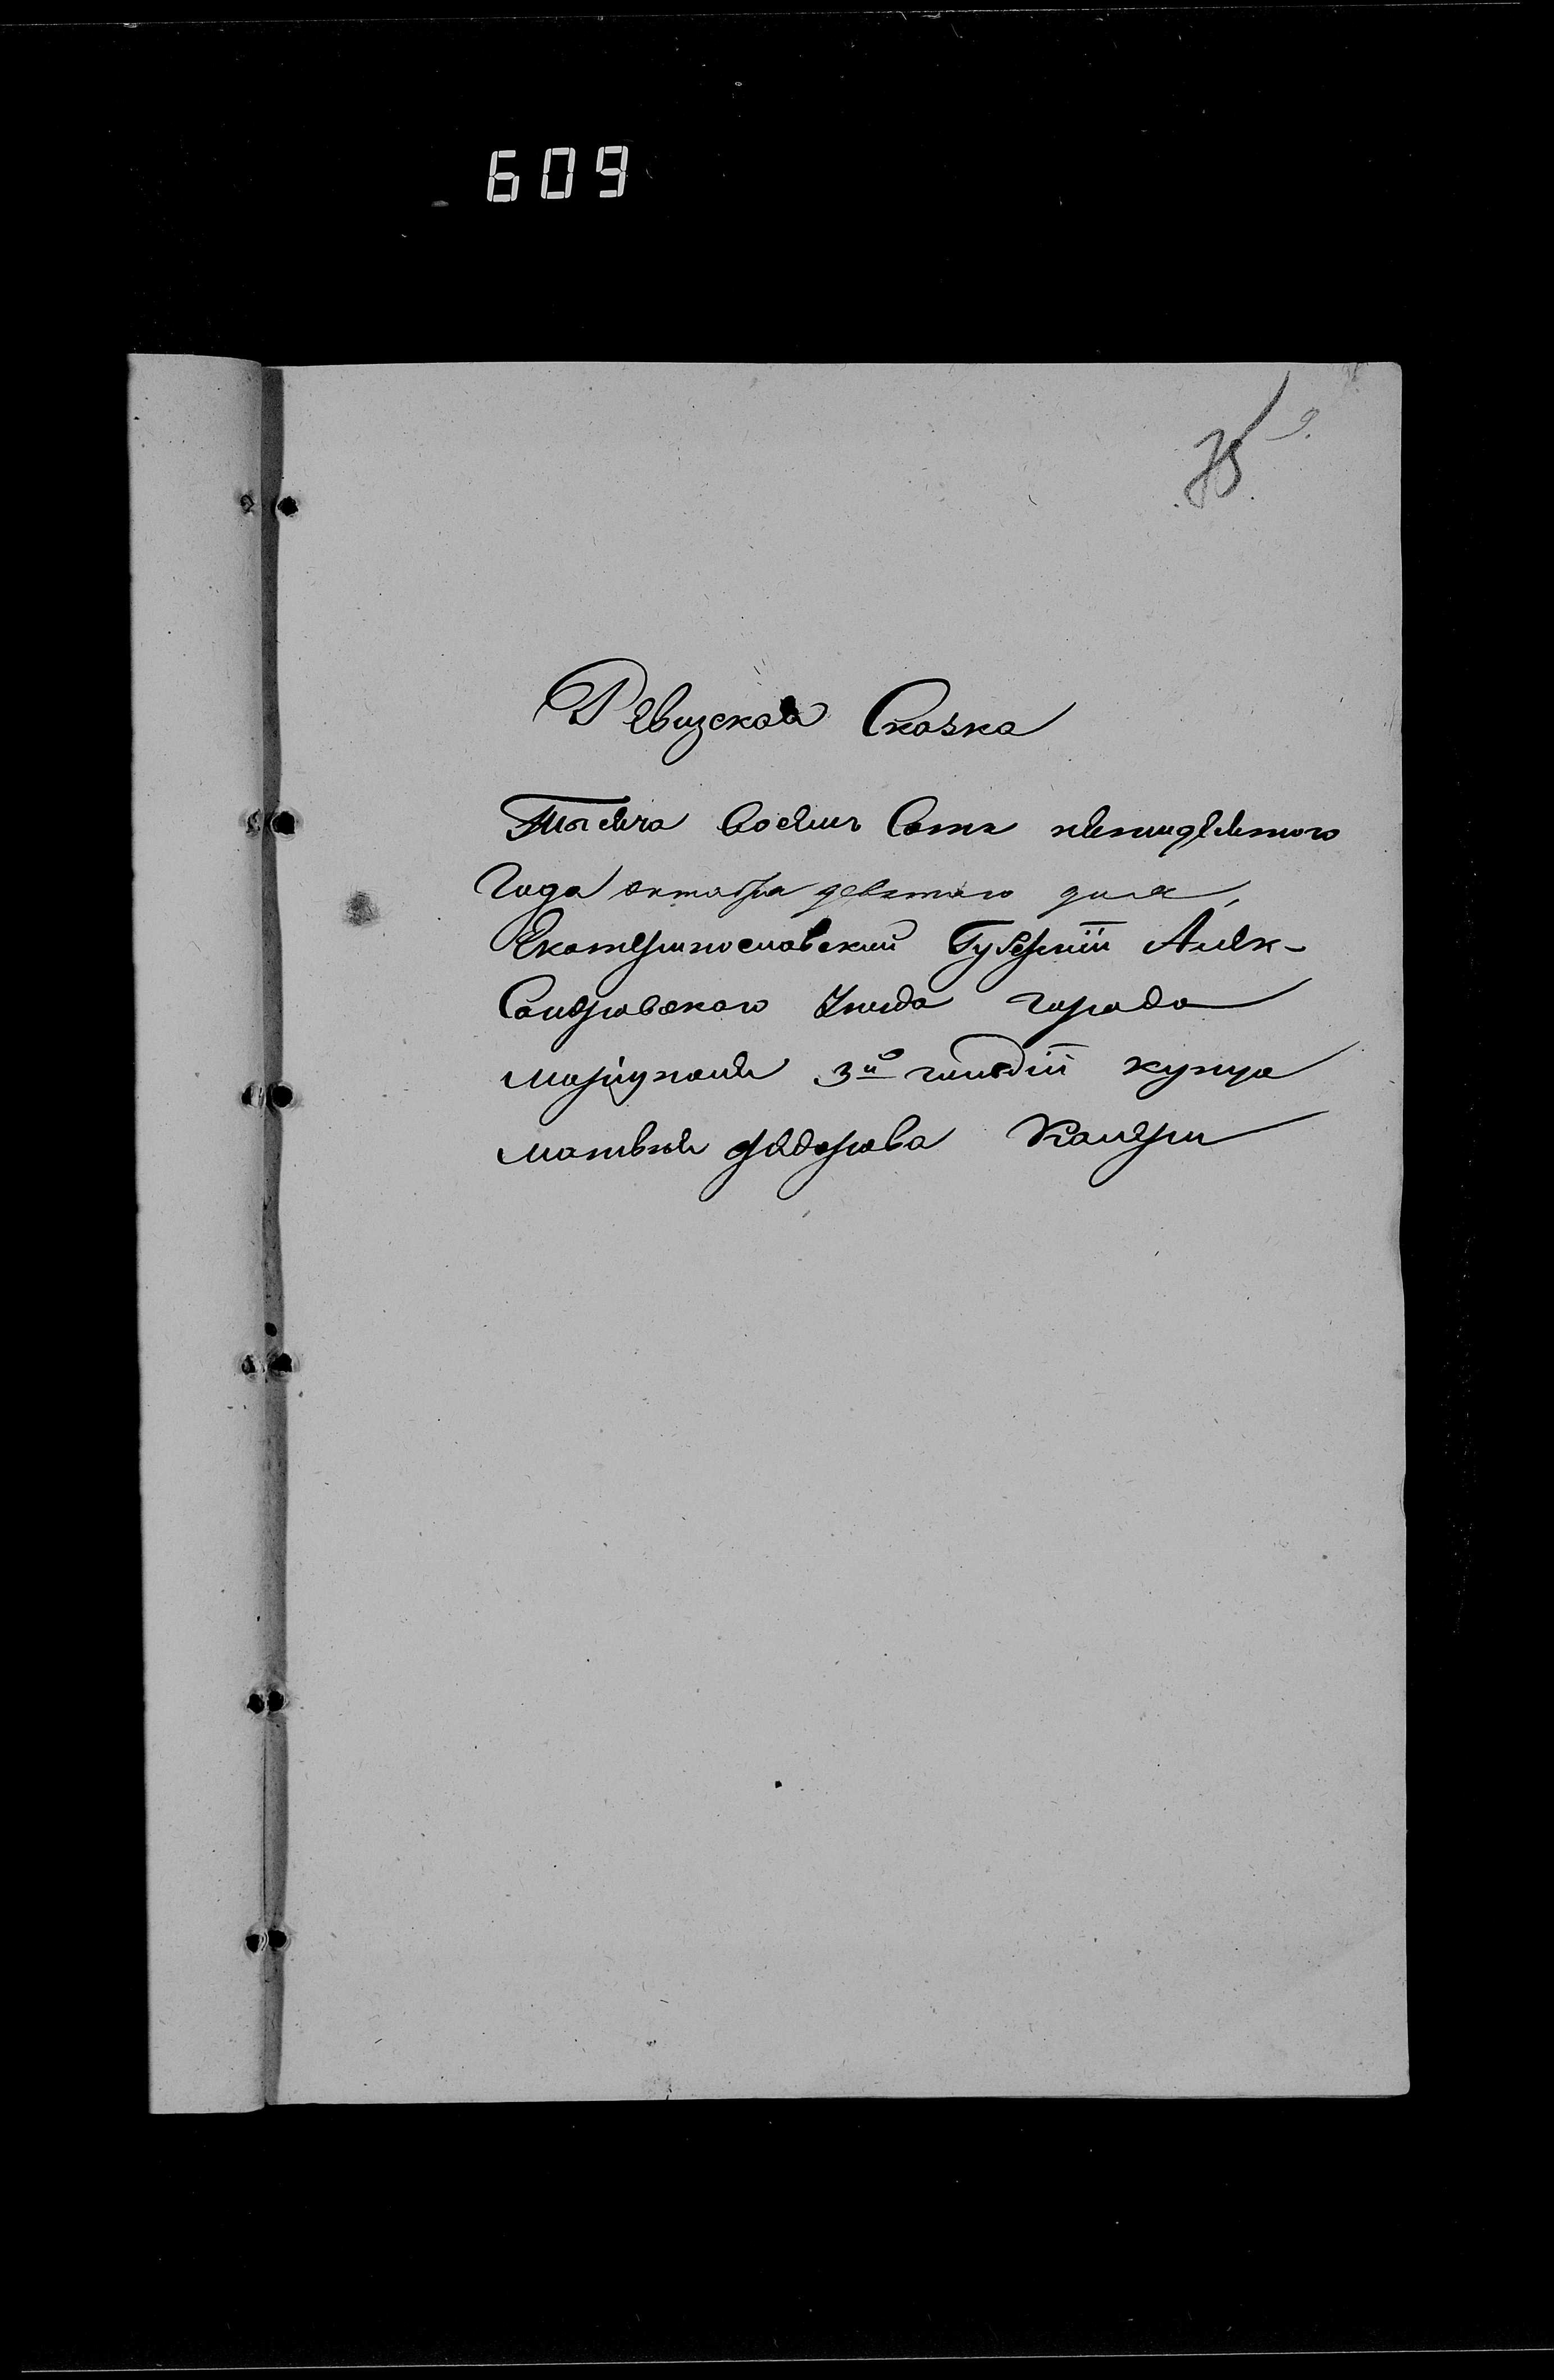 609
75 9.
Ревизская Сказка
Тысяча восемь Сотъ пятидесятого
Года октября девятаго дня,
Екатеринославской Губерніи Алек-
Сандровского Уезда города
мариуполя 3й гилдіи купца
матвея федорова Камери